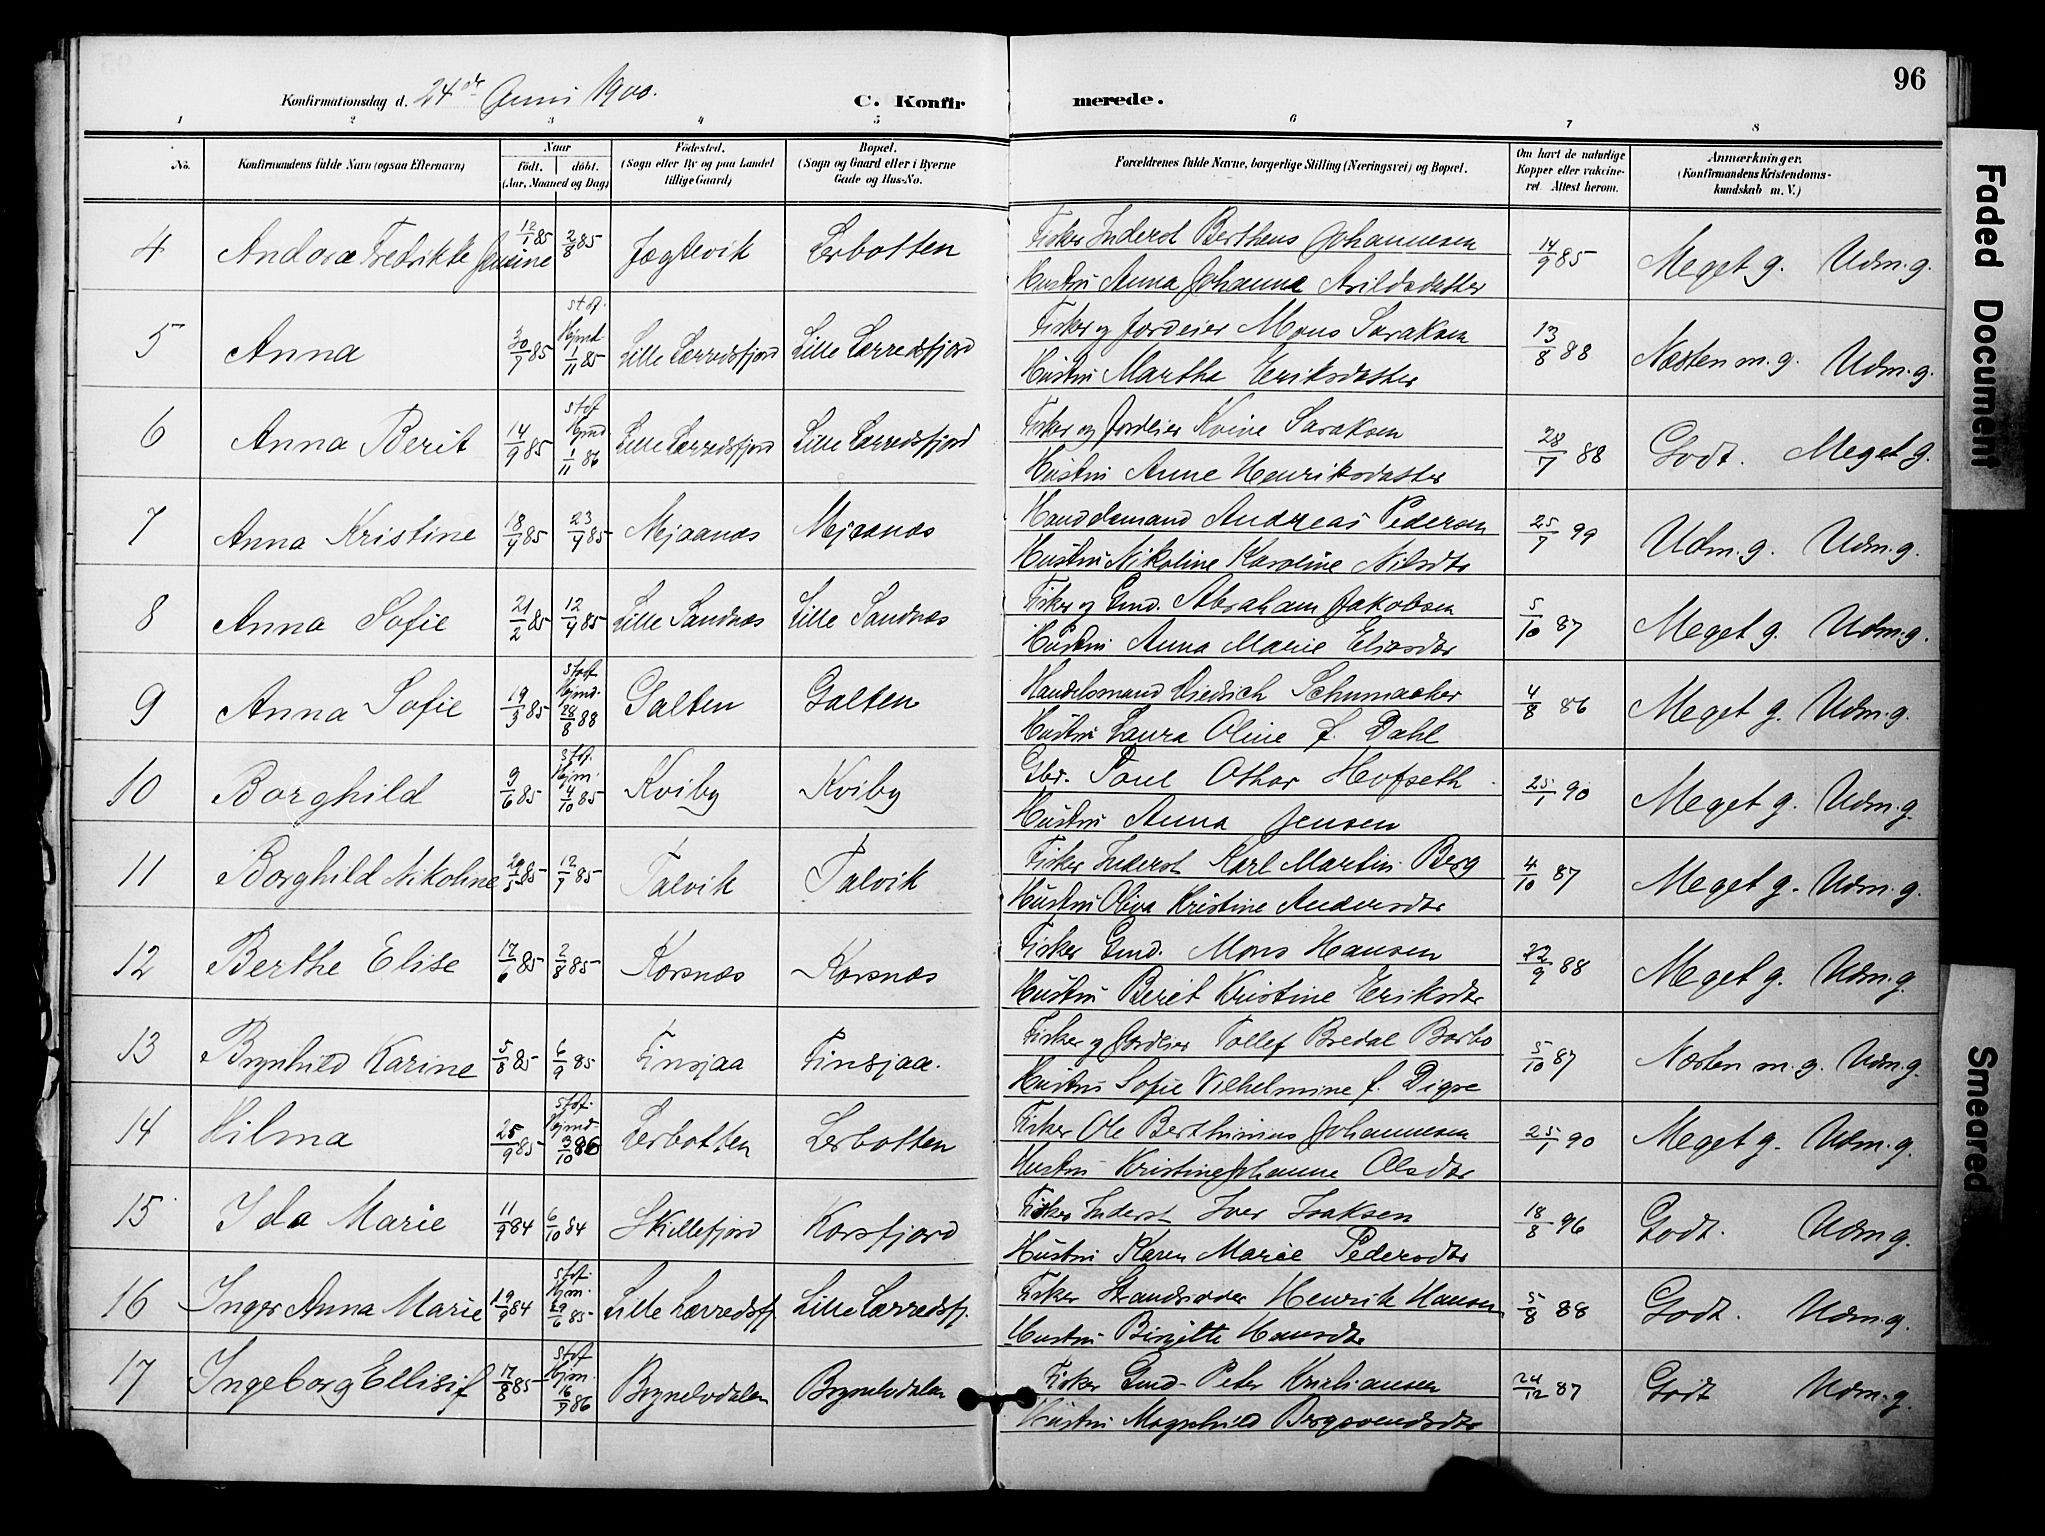 96
Konfirmationsdag d. 24de Juni 1900.
C. Konfirmerede.
1 2 3 4 5 6 7 8
No. Konfirmandens fulde Navn (ogsaa Efternavn) Naar født. døbt. (Aar, Maaned og Dag) Fødested. (Sogn eller By og paa Landet tillige Gaard) Bopæl. (Sogn og Gaard eller i Byerne Gade og Hus-No. Forældrenes fulde Navne, borgerlige Stilling (Næringsvei) og Bopæl. Om havt de naturlige Kopper eller vaccineret. Attest herom. Anmærkninger. (Konfirmandens Kristendomskundskab m. V.)
4 Andora Fredrikke Jensine 12/1 85 2/8 85 Jøgtevik Lerbotten Fisker Inderst Bertheus Johannesen 14/9 85 Meget g. Udm. g.
Hustru Anna Johanna Arildsdatter
5 Anna 30/7 85 stof. Hjmd. 1/11 85 Lille Lerredsfjord Lille Lerredsfjord Fisker og Jordeier Mons Saraksen 13/8 88 Næsten m. g. Udm. g.
Hustru Martha Eriksdatter
6 Anna Berit 14/9 85 stof Hjmd 1/11 86 Lille Lerredsfjord Lille Lerredsfjord Fisker og Jordeier Kvive Saraksen 28/7 88 Godt. Meget g.
Hustru Anne Henriksdatter
7 Anna Kristine 18/4 85 23/4 85 Mjaanæs Mjaanæs Handelsmand Andreas Pedersen 25/7 99 Udm. g. Udm. g.
Hustru Nikoline Karoline Nilsdtr
8 Anna Sofie 21/2 85 12/4 85 Lille Sandnæs Lille Sandnæs Fisker og Gmd. Abraham Jakobsen 5/10 87 Meget g. Udm. g.
Hustru Anna Marie Eliasdtr
9 Anna Sofie 19/3 85 stof Hjmd. 28/8 88 Galten Galten Handelsmand Diedrich Schumacher 4/8 86 Meget g. Udm. g.
Hustru Laura Oline f. Dahl
10 Borghild 9/6 85 stof. Hjm. 4/10 85 Kviby Kviby Gbr. Poul Othar Hofseth 25/1 90 Meget g. Udm. g.
Hustru Anna Jensen
11 Borghild Nikoline 29/5 85 12/7 85 Talvik Talvik Fisker Inderst Karl Martin Berg 4/10 87 Meget g. Udm. g.
Hustru Oliva Kristine Andersdtr
12 Berthe Elise 17/6 85 2/8 85 Korsnæs Korsnæs Fisker Gmd. Mons Hansen 22/9 88 Meget g. Udm. g.
Hustru Berit Kristine Eriksdtr
13 Brynhild Karine 5/8 85 6/9 85 Finsjaa Finsjaa. Fisker og Jordeier Tollef Bredal Barbo 5/10 87 Næsten m. g. Udm. g.
Hustru Sofie Vilhelmine f. Digre
14 Hilma 25/9 85 stof. Hjmd. 3/10 86 Lerbotten Lerbotten Fisker Ole Berthinius Johannesen 25/1 90 Meget g. Udm. g.
Hustru Kristine Johanne Olsdtr
15 Ida Marie 11/9 84 6/10 84 Skillefjord Korsfjord Fisker Inderst Iver Isaksen 18/8 96 Godt. Udm. g.
Hustru Karen Marie Pedersdtr
16 Inger Anna Marie 19/9 84 stof. Hjm. 29/6 85 Lille Lerredsfj. Lille Lerredsfj. Fisker Strandsidder Henrik Hansen 5/8 88 Godt. Udm. g.
Hustru Birgitte Hansdtr
17 Ingeborg Ellisif 17/8 85 stof Hjm. 16/7 86 Brynelvdalen Brynelvdalen Fisker Gmd. Peter Kristiansen 24/12 87 Godt Udm. g.
Hustru Magnhild Bergsvendsdtr
Faded Document
Smeared